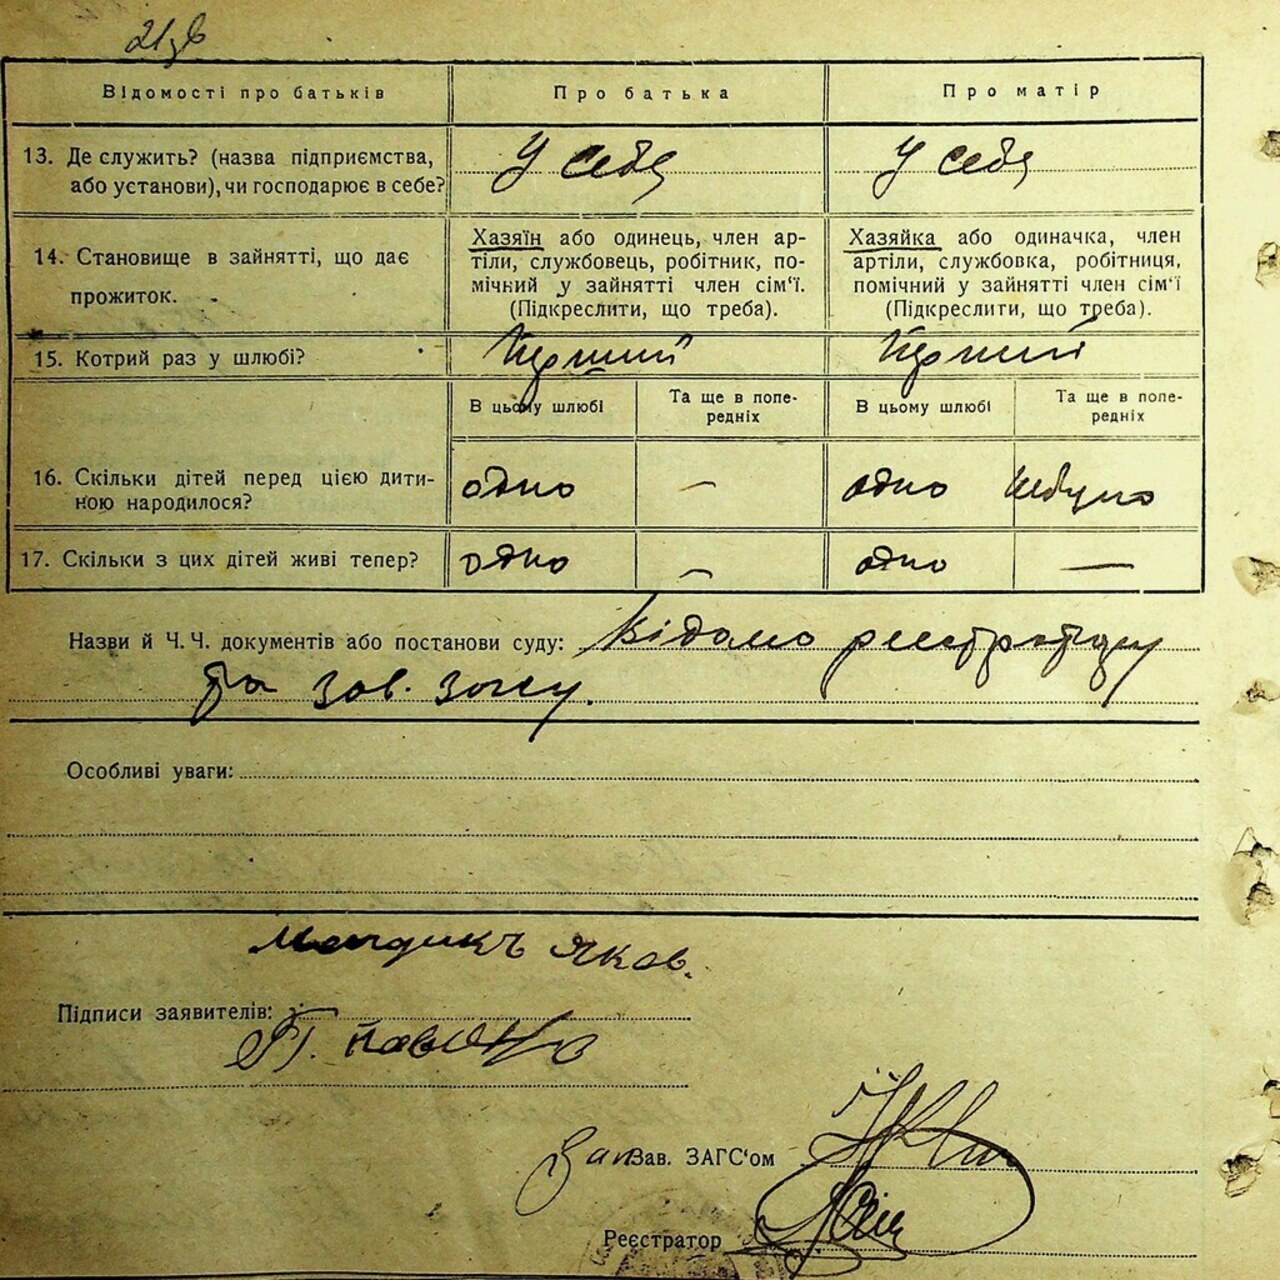 21зв
Відомості про батьків Про батька Про матір
13. Де служить? (назва підприємства, У себя У себя
або установи), чи господарює в себе?
14. Становище в зайнятті, що дає
прожиток.
Хазяїн або одинець, член ар-
тіли, службовець, робітник, по-
мічний у зайнятті член сім‘ї.
(Підкреслити, що треба).
Хазяйка або одиначка, член
артіли, службовка, робітниця,
помічний у зайнятті член сім‘ї
(Підкреслити, що треба).
15. Котрий раз у шлюбі? Перший Перший
В цьому шлюбі Та ще в попе-
редніх В цьому шлюбі Та ще в попе-
редніх
16. Скільки дітей перед цією дити-
ною народилося? одно — одно небуло
17. Скільки з цих дітей живі тепер? одно — одно —
Назви й Ч. Ч. документів або постанови суду: Відомо реєстратору
та зав. загсу.
Особливі уваги:
Яков.
Підписи заявителів:
П.
Зав. ЗАГС‘ом
Реєстратор